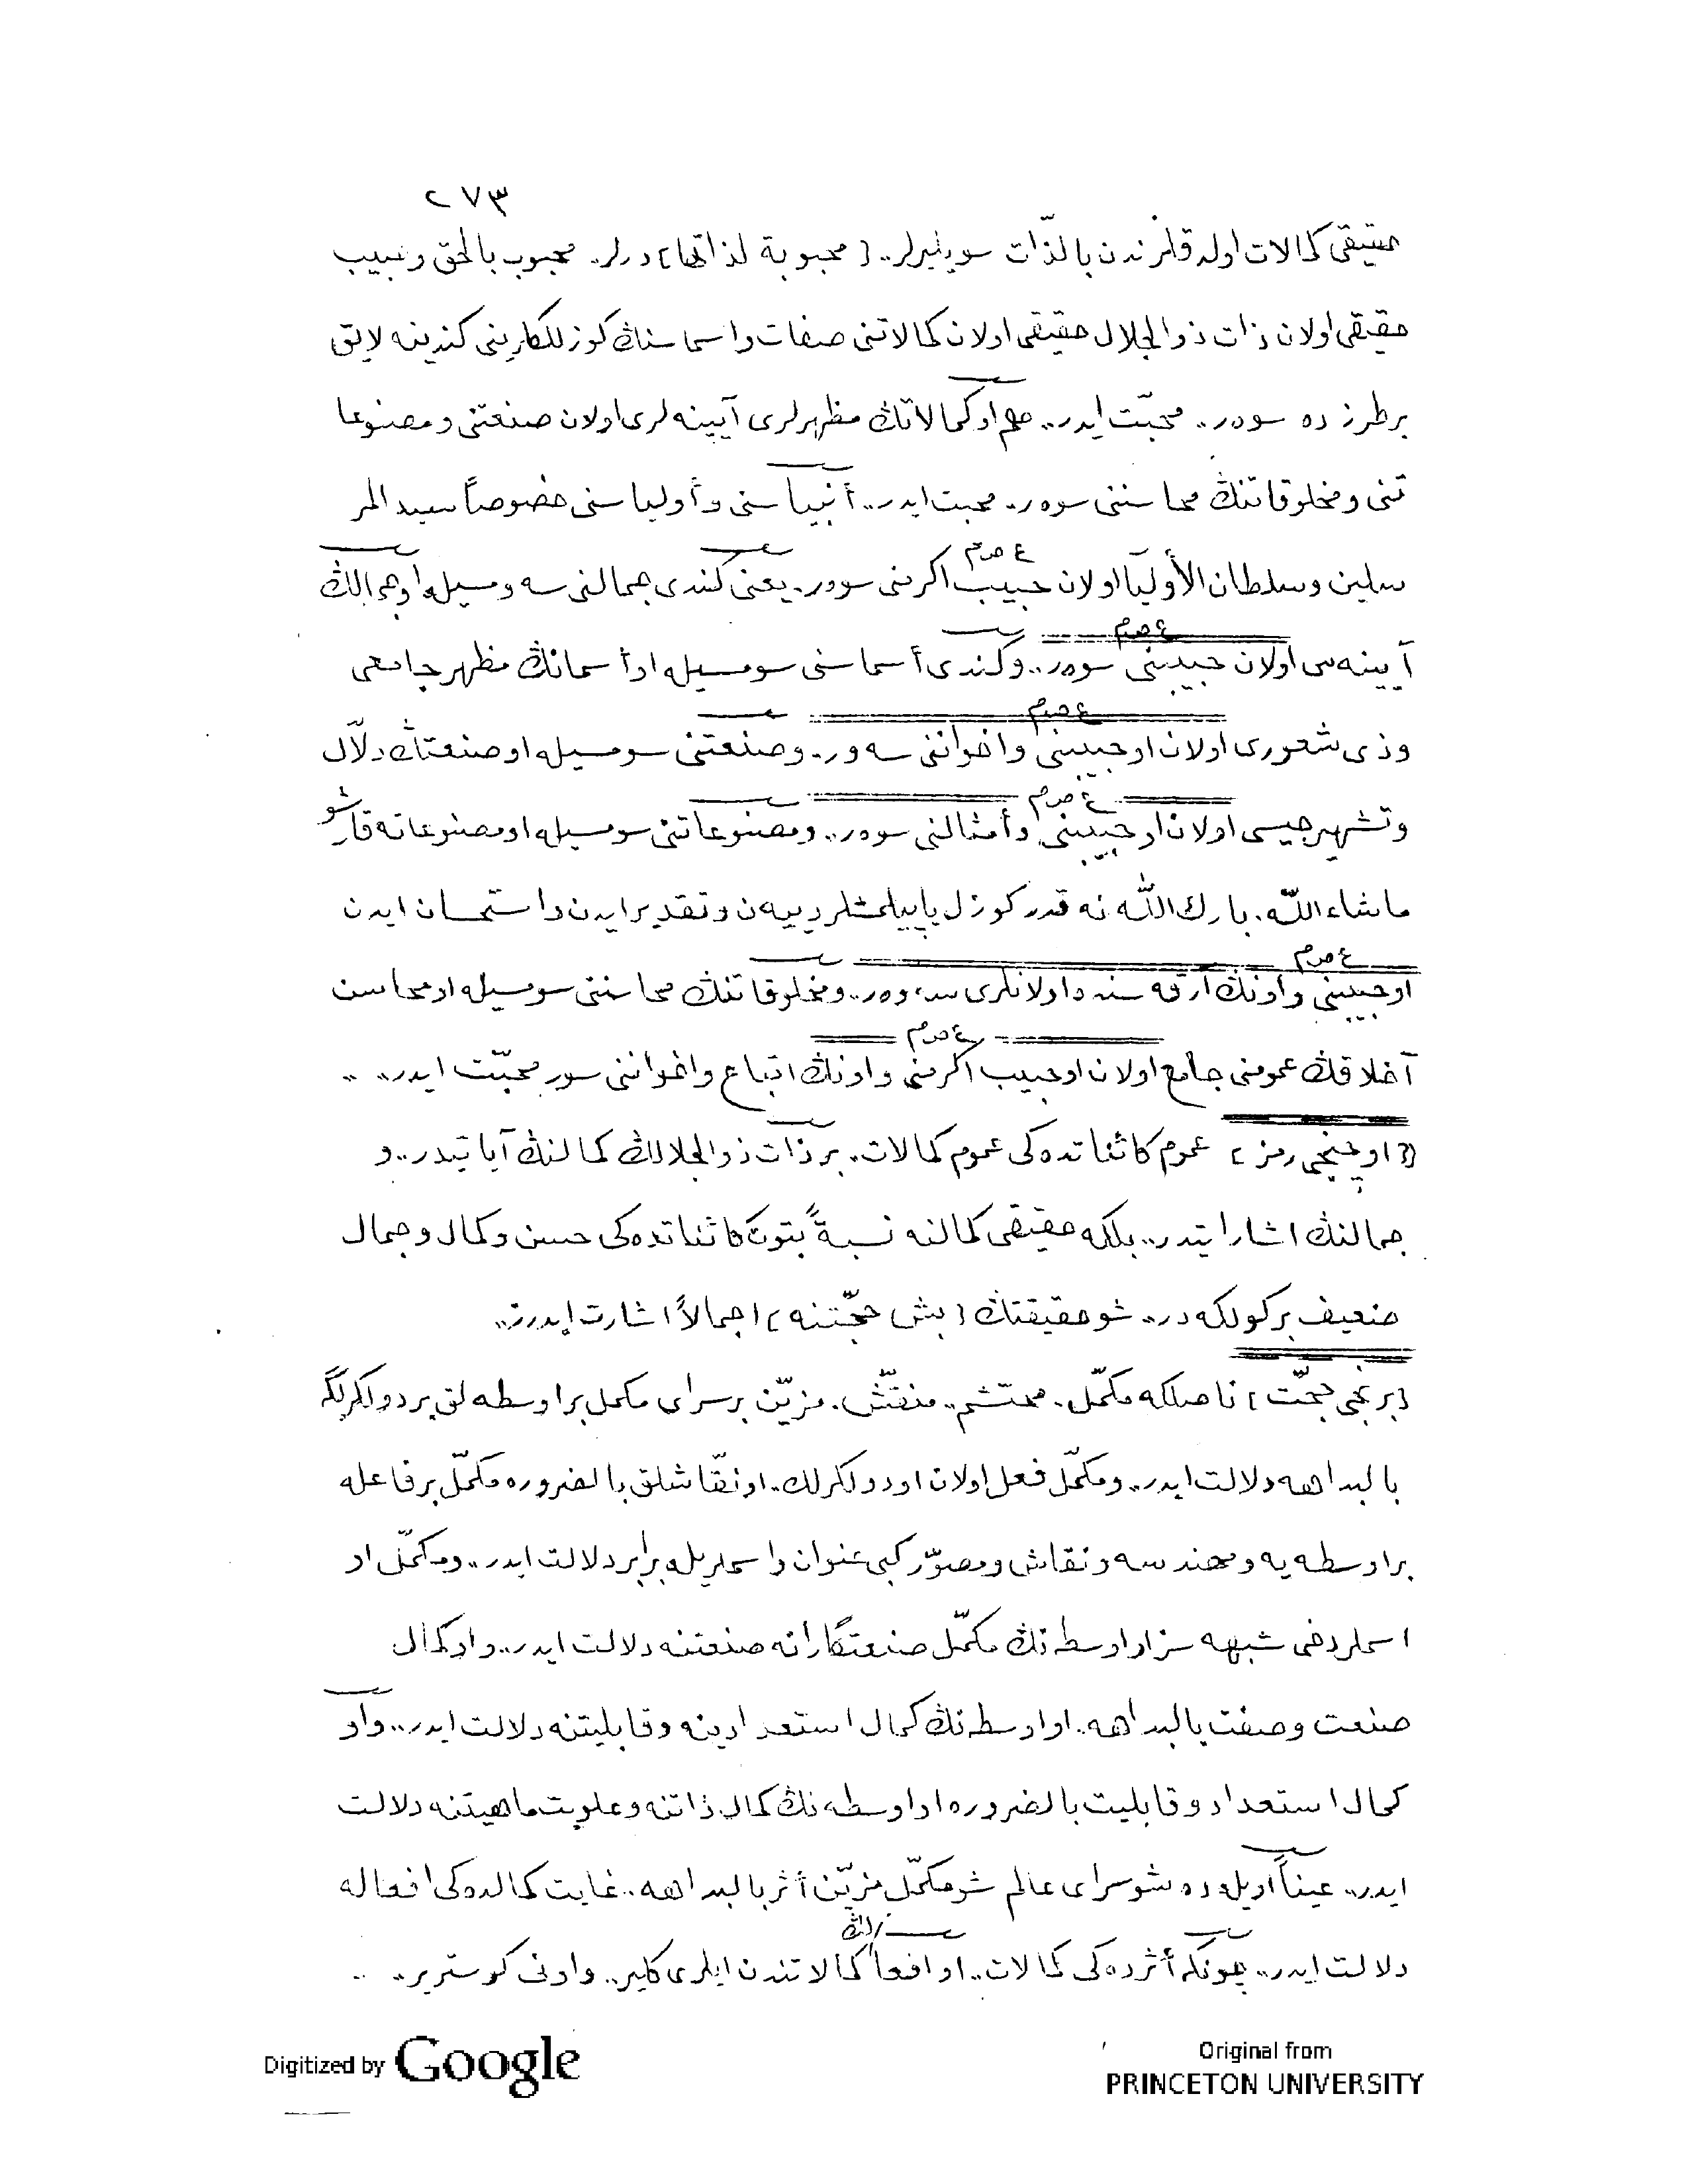 ٢٧٣
حقيقى كمالات اولدقلرندن بالذّات سويليرلر.. [محبوبة لذاتها] درلر. محبوب بالحق وحبيب
حقيقى اولان ذات ذوالجلال حقيقى اولان كمالاتنى صفات واسماسنڭ كوزللكلرينى كندينه لايق
برطرزده سوەر.. محبّت ايدر.. هم او كمالاتڭ مظهرلرى آيينه لرى اولان صنعتنى و مصنوعا
تنى و مخلوقاتنڭ محاسننى سوەر. محبت ايدر.. أنبياسنى و أولياسنى خصوصاً سيد المر
سلين وسلطان الأوليا اولان حبيب اكرمنى سوەر. يعنى كندى جمالنى سه وسيله او جمالڭ
ع ص م
آيينه سى اولان حبيبنى سوەر.. وكندى أسماسنى سومسيله او أسمانڭ مظهر جامعى
ع ص م
وذى شعورى اولان او حبيبنى و اخواننى سه ور. وصنعتنى سومسيله او صنعتڭ دلّال
ع ص م
وتشهيرجيسى اولان او حبيبنى و أمثالنى سوەر.. ومصنوعاتنى سومسيله او مصنوعاته قارشو
ع ص م
ماشاءاللّه. بارك اللّه نه قدر كوزل ياپيلمشلر دييەن و تقدير ايدن و استحسان ايدن
او حبيبنى و اونڭ آرقه سنده اولانلرى سه وەر.. ومخلوقاتنڭ محاسننى سومسيله او محاسن
ع ص م
آخلاقڭ عمومنى جامع اولان او حبيب اكرمنى و اونڭ اتباع و اخواننى سور محبّت ايدر..
ع ص م
[اوچنجى رمز] عموم كائناتده كى عموم كمالات. بر ذات ذوالجلالڭ كمالنڭ آياتيدر.. و
جمالنڭ اشاراتيدر.. بلكه حقيقى كمالنه نسبةً بتون كائناتده كى حسن و كمال و جمال
ضعيف بر كولكه در.. شو حقيقتڭ [بش حجّتنه] اجمالاً اشارت ايدرز..
[برنجى حجّت] ناصلكه مكمّل. محتشم. منقّش. مزيّن بر سراى مكمل بر اوسطه لق بر دولكرلگه
بالبداهه دلالت ايدر.. ومكمّل فعل اولان او دولكرلك. او نقّاشلق بالضروره مكمّل بر فاعله
بر اوسطه يه و مهندسه و نقاش و مصوّر كبى عنوان و اسملريله برابر دلالت ايدر.. ومكمّل او
اسملر دخى شبهه سز او اوسطه نڭ مكمّل صنعتكارانه صنعتنه دلالت ايدر.. واو كمال
صنعت و صفت بالبداهه.. او اوسطه نڭ كمال استعدادينه و قابليتنه دلالت ايدر.. واو
كمال استعداد و قابليت بالضروره او اوسطه نڭ كمال ذاتنه و علويت ماهيتنه دلالت
ايدر.. عيناً اويله ده شو سراى عالم شو مكمّل مزيّن أثر بالبداهه.. غايت كمالده كى افعاله
دلالت ايدر.. چونكه أثرده كى كمالات.. او افعالڭ كمالاتندن ايلرى كلير.. واونى كوستريز.
Digitized by Google
Original from
PRINCETON UNIVERSITY